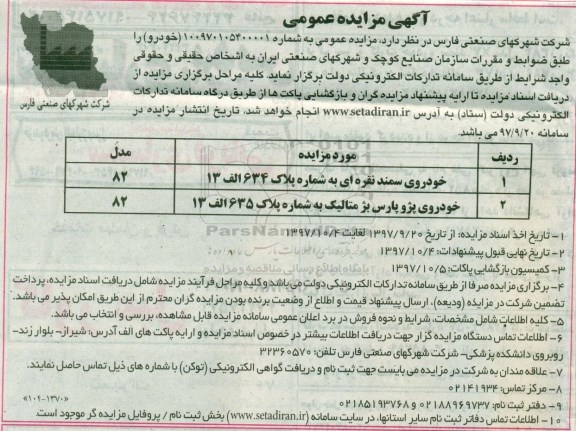 آگهی مزایده عمومی
شرکت شهرکهای صنعتی فارس
شرکت شهرکهای صنعتی فارس در نظر دارد، مزایده عمومی به شماره ۱۰۰۹۷۰۱۰۵۴۰۰۰۰۱(خودرو) را
طبق ضوابط و مقررات سازمان صنایع کوچک و شهرکهای صنعتی ایران به اشخاص حقیقی و حقوقی
واجد شرایط از طریق سامانه تدارکات الکترونیکی دولت برگزار نماید. کلیه مراحل برگزاری مزایده از
دریافت اسناد مزایده تا ارایه پیشنهاد مزایده گران و بازگشایی پاکت ها از طریق درگاه سامانه تدارکات
الکترونیکی دولت (ستاد) به آدرس www.setadiran.ir انجام خواهد شد. تاریخ انتشار مزایده در
سامانه ۹۷/۹/۲۰ می باشد.
ردیف مورد مزایده مدل
۱ خودروی سمند نقره ای به شماره پلاک ۶۳۴ الف ۱۳ ۸۲
۲ خودروی پژو پارس بژ متالیک به شماره پلاک ۶۳۵ الف ۱۳ ۸۲
۱- تاریخ اخذ اسناد مزایده: از تاریخ ۱۳۹۷/۹/۲۰ لغایت ۱۳۹۷/۱۰/۴
۲- تاریخ نهایی قبول پیشنهادات: ۱۳۹۷/۱۰/۴
۳- کمیسیون بازگشایی پاکات: ۱۳۹۷/۱۰/۵
۴- برگزاری مزایده صرفا از طریق سامانه تدارکات الکترونیکی دولت می باشد و کلیه مراحل فرآیند مزایده شامل دریافت اسناد مزایده، پرداخت
تضمین شرکت در مزایده (ودیعه)، ارسال پیشنهاد قیمت و اطلاع از وضعیت برنده بودن مزایده گران محترم از این طریق امکان پذیر می باشد.
۵- کلیه اطلاعات شامل مشخصات، شرایط و نحوه فروش در برد اعلان عمومی سامانه مزایده قابل مشاهده، بررسی و انتخاب می باشد.
۶- اطلاعات تماس دستگاه مزایده گزار جهت دریافت اطلاعات بیشتر در خصوص اسناد مزایده و ارایه پاکت های الف آدرس: شیراز- بلوار زند-
روبروی دانشکده پزشکی- شرکت شهرکهای صنعتی فارس تلفن: ۳۲۳۶۰۵۷۰
۷- علاقه مندان به شرکت در مزایده می بایست جهت ثبت نام و دریافت گواهی الکترونیکی (توکن) با شماره های ذیل تماس حاصل نمایند.
۸- مرکز تماس: ۰۲۱۴۱۹۳۴
۹- دفتر ثبت نام: ۰۲۱۸۸۹۶۹۷۳۷ و ۰۲۱۸۵۱۹۳۷۶۸
«۱۰۲-۱۳۷۰»
۱۰- اطلاعات تماس دفاتر ثبت نام سایر استانها، در سایت سامانه (www.setadiran.ir) بخش ثبت نام / پروفایل مزایده گر موجود است.